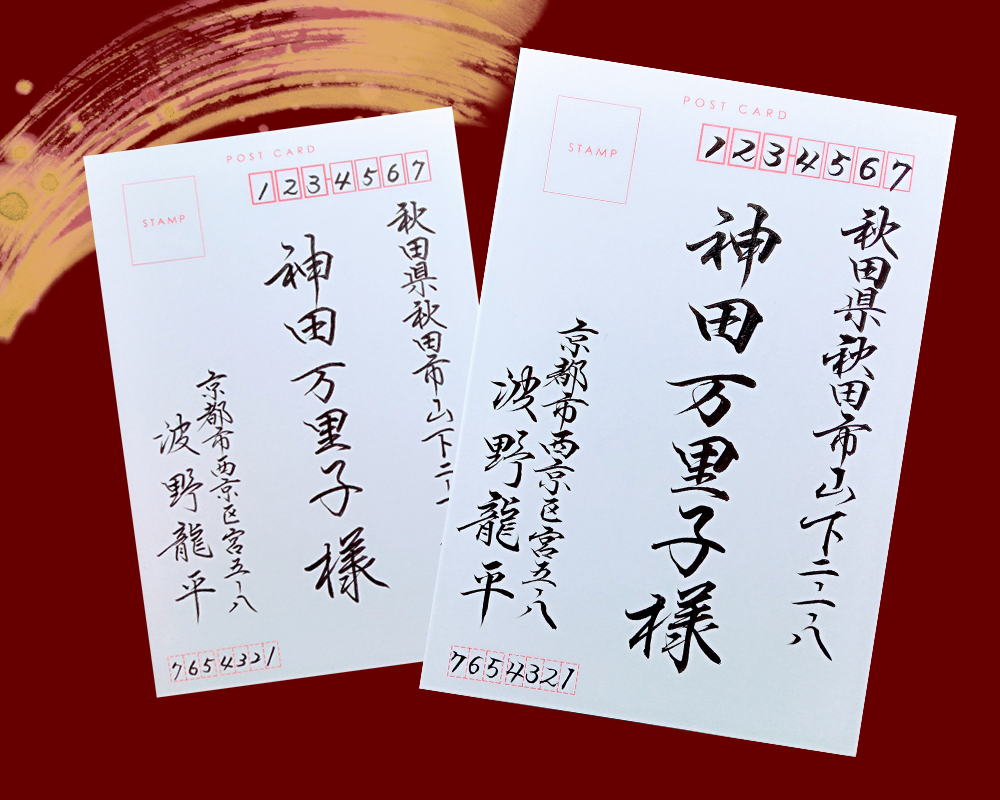 POST CARD
STAMP
123-4567
秋田県秋田市山下二ー一
神田万里子様
京都市西京区宮五ー八
波野龍平
7654321
POST CARD
STAMP
123-4567
秋田県秋田市山下二ー一ー八
神田万里子様
京都市西京区宮五ー八
波野龍平
7654321